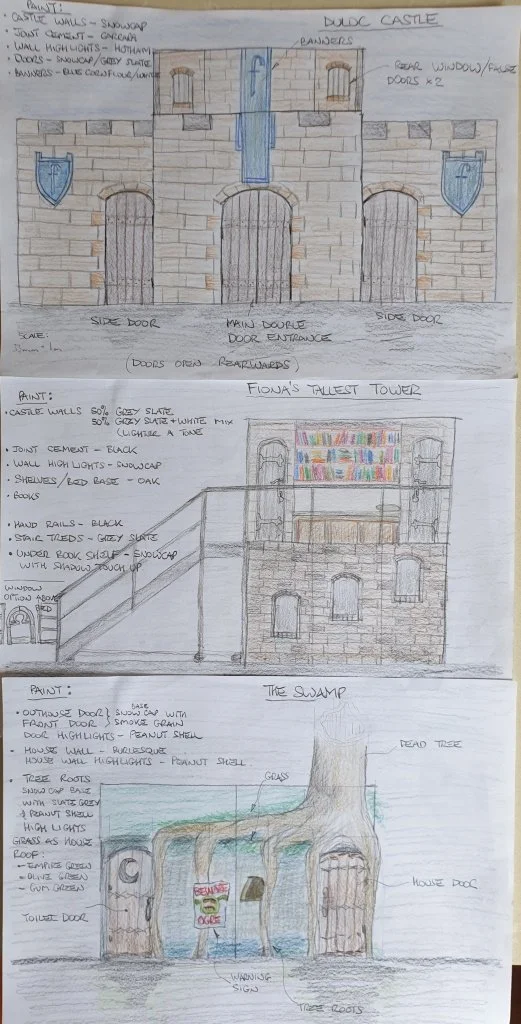 PAINT:
• CASTLE WALLS - SNOWCAP
• JOINT CEMENT - CARRARA
• WALL HIGHLIGHTS - HOTHAM
• DOORS - SNOWCAP/GREY SLATE
• BANNERS - BLUE CORNFLOUR/WHITE
DULOC CASTLE
BANNERS
REAR WINDOW/FALSE
DOORS x 2
f
f
f
SIDE DOOR
MAIN DOUBLE
DOOR ENTRANCE
SIDE DOOR
SCALE:
(DOORS OPEN REARWARDS)
FIONA'S TALLEST TOWER
PAINT:
• CASTLE WALLS 50% GREY SLATE
50% GREY SLATE + WHITE MIX
(LIGHTER A TONE
• JOINT CEMENT - BLACK
• WALL HIGHLIGHTS - SNOWCAP
• SHELVES/BED BASE - OAK
• BOOKS
• HAND RAILS - BLACK
• STAIR TREDS - GREY SLATE
• UNDER BOOK SHELF - SNOWCAP
WITH SHADOW TOUCH UP
WINDOW
OPTION ABOVE
BED
THE SWAMP
PAINT:
• OUTHOUSE DOOR } BASE SNOW CAP WITH
FRONT DOOR } SMOKE GRAIN
DOOR HIGHLIGHTS - PEANUT SHELL
• HOUSE WALL - BURLESQUE
HOUSE WALL HIGHLIGHTS - PEANUT SHELL
• TREE ROOTS
SNOW CAP BASE
WITH SLATE GREY
& PEANUT SHELL
HIGH LIGHTS
GRASS AS HOUSE
ROOF:
- EMPIRE GREEN
- OLIVE GREEN
- GUM GREEN
DEAD TREE
GRASS
HOUSE DOOR
TOILET DOOR
BEWARE
OGRE
WARNING
SIGN
TREE ROOTS